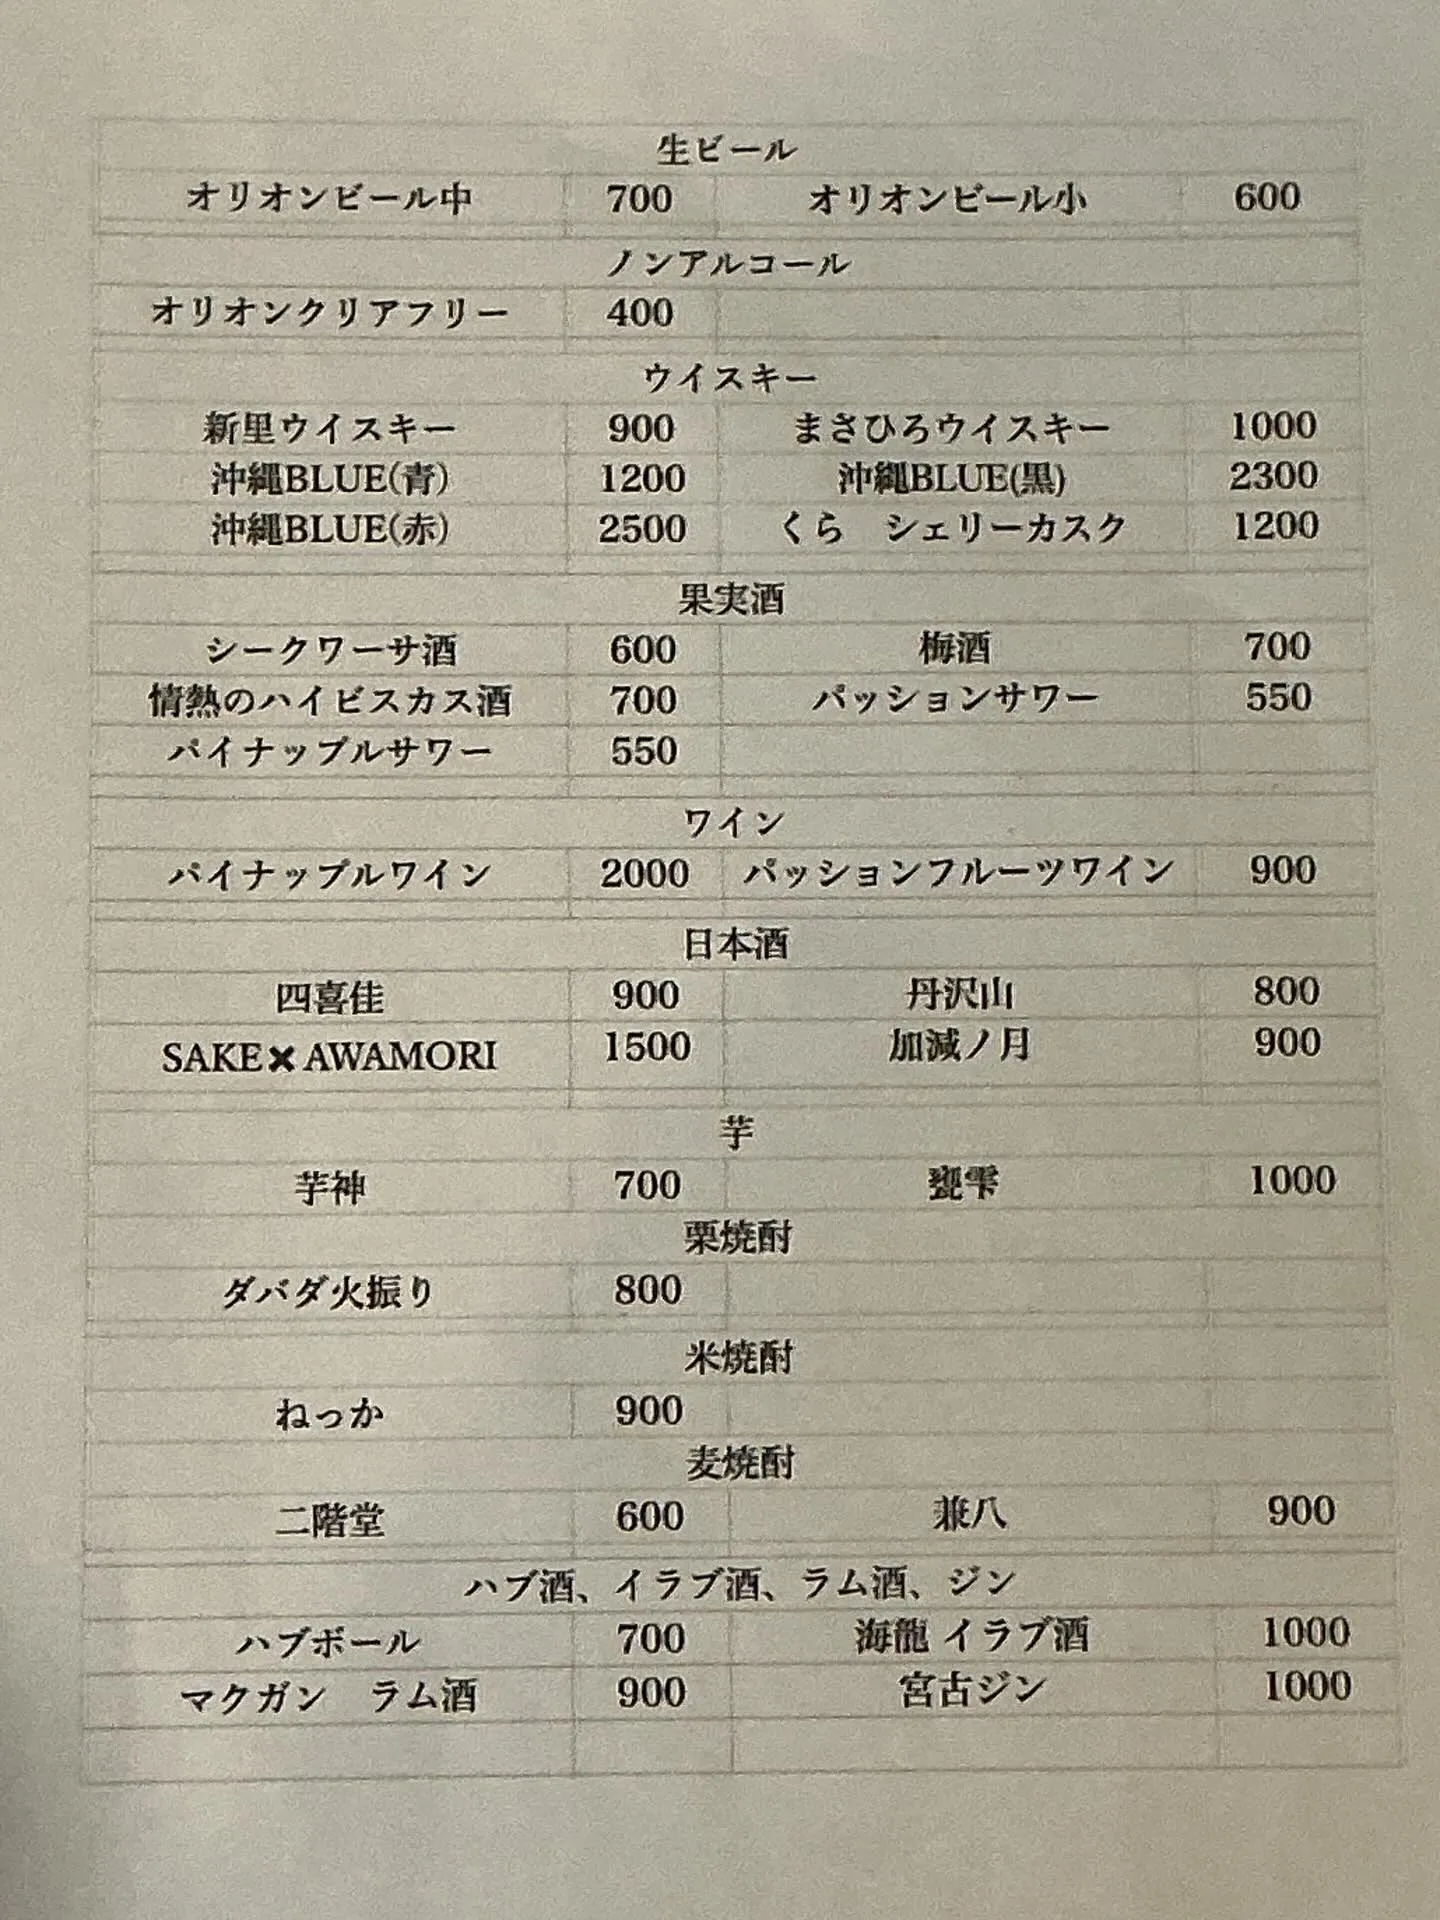 生ビール
オリオンビール中 700 オリオンビール小 600
ノンアルコール
オリオンクリアフリー 400
ウイスキー
新里ウイスキー 900 まさひろウイスキー 1000
沖縄BLUE(青) 1200 沖縄BLUE(黒) 2300
沖縄BLUE(赤) 2500 くら　シェリーカスク 1200
果実酒
シークワーサ酒 600 梅酒 700
情熱のハイビスカス酒 700 パッションサワー 550
パイナップルサワー 550
ワイン
パイナップルワイン 2000 パッションフルーツワイン 900
日本酒
四喜佳 900 丹沢山 800
SAKE✖AWAMORI 1500 加減ノ月 900
芋
芋神 700 甕雫 1000
栗焼酎
ダバダ火振り 800
米焼酎
ねっか 900
麦焼酎
二階堂 600 兼八 900
ハブ酒、イラブ酒、ラム酒、ジン
ハブボール 700 海龍 イラブ酒 1000
マクガン　ラム酒 900 宮古ジン 1000